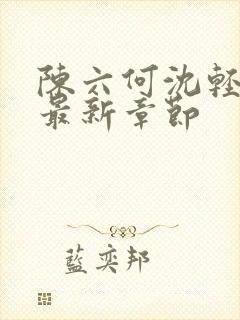 陳六何沈輕
最新章節
藍奕邦